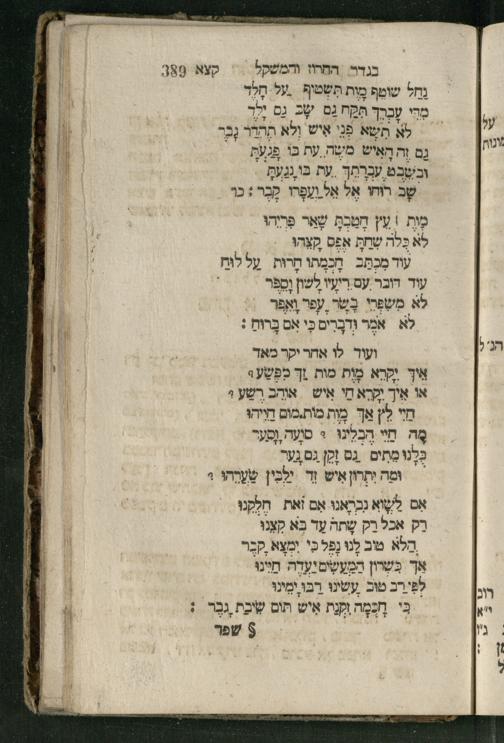 בגדר החרוז והמשקל קצא 389
נַחַל שׁוֹטֵף מָוֶת תִּשְׁטוֹף עַל חָלֶד
מִדֵּי עָבְרֶךָ תִּקַּח גַּם שָׂב גַּם יֶלֶד
לֹא תִשָּׂא פְנֵי אִישׁ וְלֹא תֶהְדַּר גָּבֶר
גַּם זֶה הָאִישׁ מֹשֶׁה עֵת בּוֹ פָּגַעְתָּ
וּבְשֵׁבֶט עֶבְרָתְךָ עֵת בּוֹ נָגַעְתָּ
שָׁב רוּחוֹ אֶל אֵל וַעֲפָרוֹ קָבֶר : כו
מָוֶת ! עֵץ חָטַבְתָּ שָׁאַר פִּרְיֵהוּ
לֹא כֻּלֹּה שִׁחַתָּ אֶפֶס קָצֵהוּ
עוֹד מִכְתַּב חָכְמָתוֹ חָרוּת עַל לוּחַ
עוֹד דּוֹבֵר עִם רֵיעָיו לָשׁוֹן וָסֵפֶר
לֹא מִשִּׂפְרֵי בָּשָׂר עָפָר וָאֵפֶר
לֹא אֹמֶר וּדְבָרִים כִּי אִם בָּרוּחַ :
ועוד לו אחר יקר מאד
אֵיךְ יִקָּרֵא מָוֶת מוֹת זַךְ מִפֶּשַׁע ?
אוֹ אֵיךְ יִקָּרֵא חַי אִישׁ אוֹהֵב רֶשַׁע ?
חַיֵּי לֵץ אַךְ מָוֶת מוֹת.מוּם חַיֵּיהוּ
מָה חַיֵּי הֶבְלֵינוּ ? סוֹעָה וָסַעַר
כֻּלָּנוּ מֵתִים גַּם זָקֵן גַּם נַעַר
וּמַה יִּתְרוֹן אִישׁ זֵד יַלְבִּין שַׂעֲרֵהוּ ?
אִם לַשָּׁוְא נִבְרָאנוּ אִם זֹאת חֶלְקֵנוּ
רַק אֱכֹל רַק שָׁתֹה עַד בֹּא קִצֵּנוּ
הֲלֹא טוֹב לָנוּ נֵפֶל כִּי יִמְצָא קָבֶר
אַךְ כִּשְׁרוֹן הַמַּעֲשִׂים יַעְדֶּה חַיֵּינוּ
לְפִי רַב טוּב עָשִׂינוּ רַבּוּ יָמֵינוּ
כִּי חָכְמָה זִקְנַת אִישׁ תּוֹם שֵׂיבַת גָּבֶר :
§ שפד
על
רוב
י״א